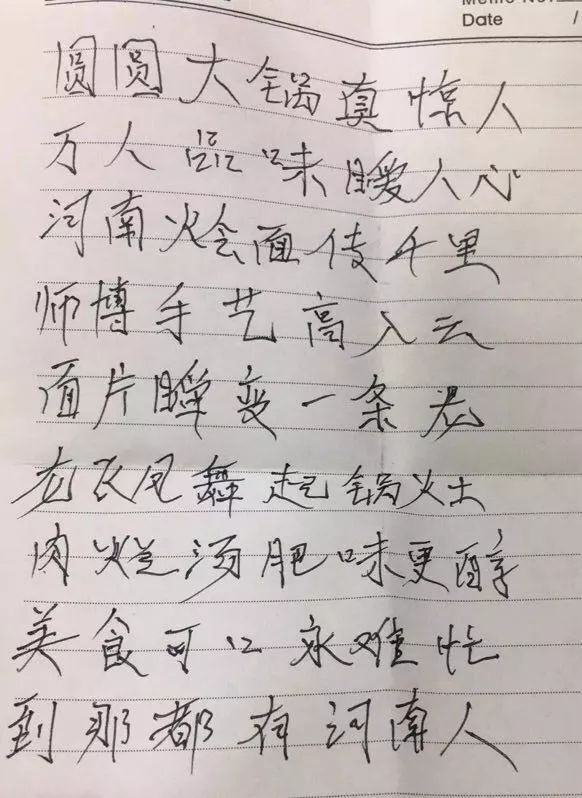 Date /
圆圆大锅真惊人
万人品味暖人心
河南烩面传千里
师博手艺高入云
面片瞬变一条龙
龙飞凤舞起锅灶
肉烂汤肥味更醇
美食可口永难忙
到那都有河南人